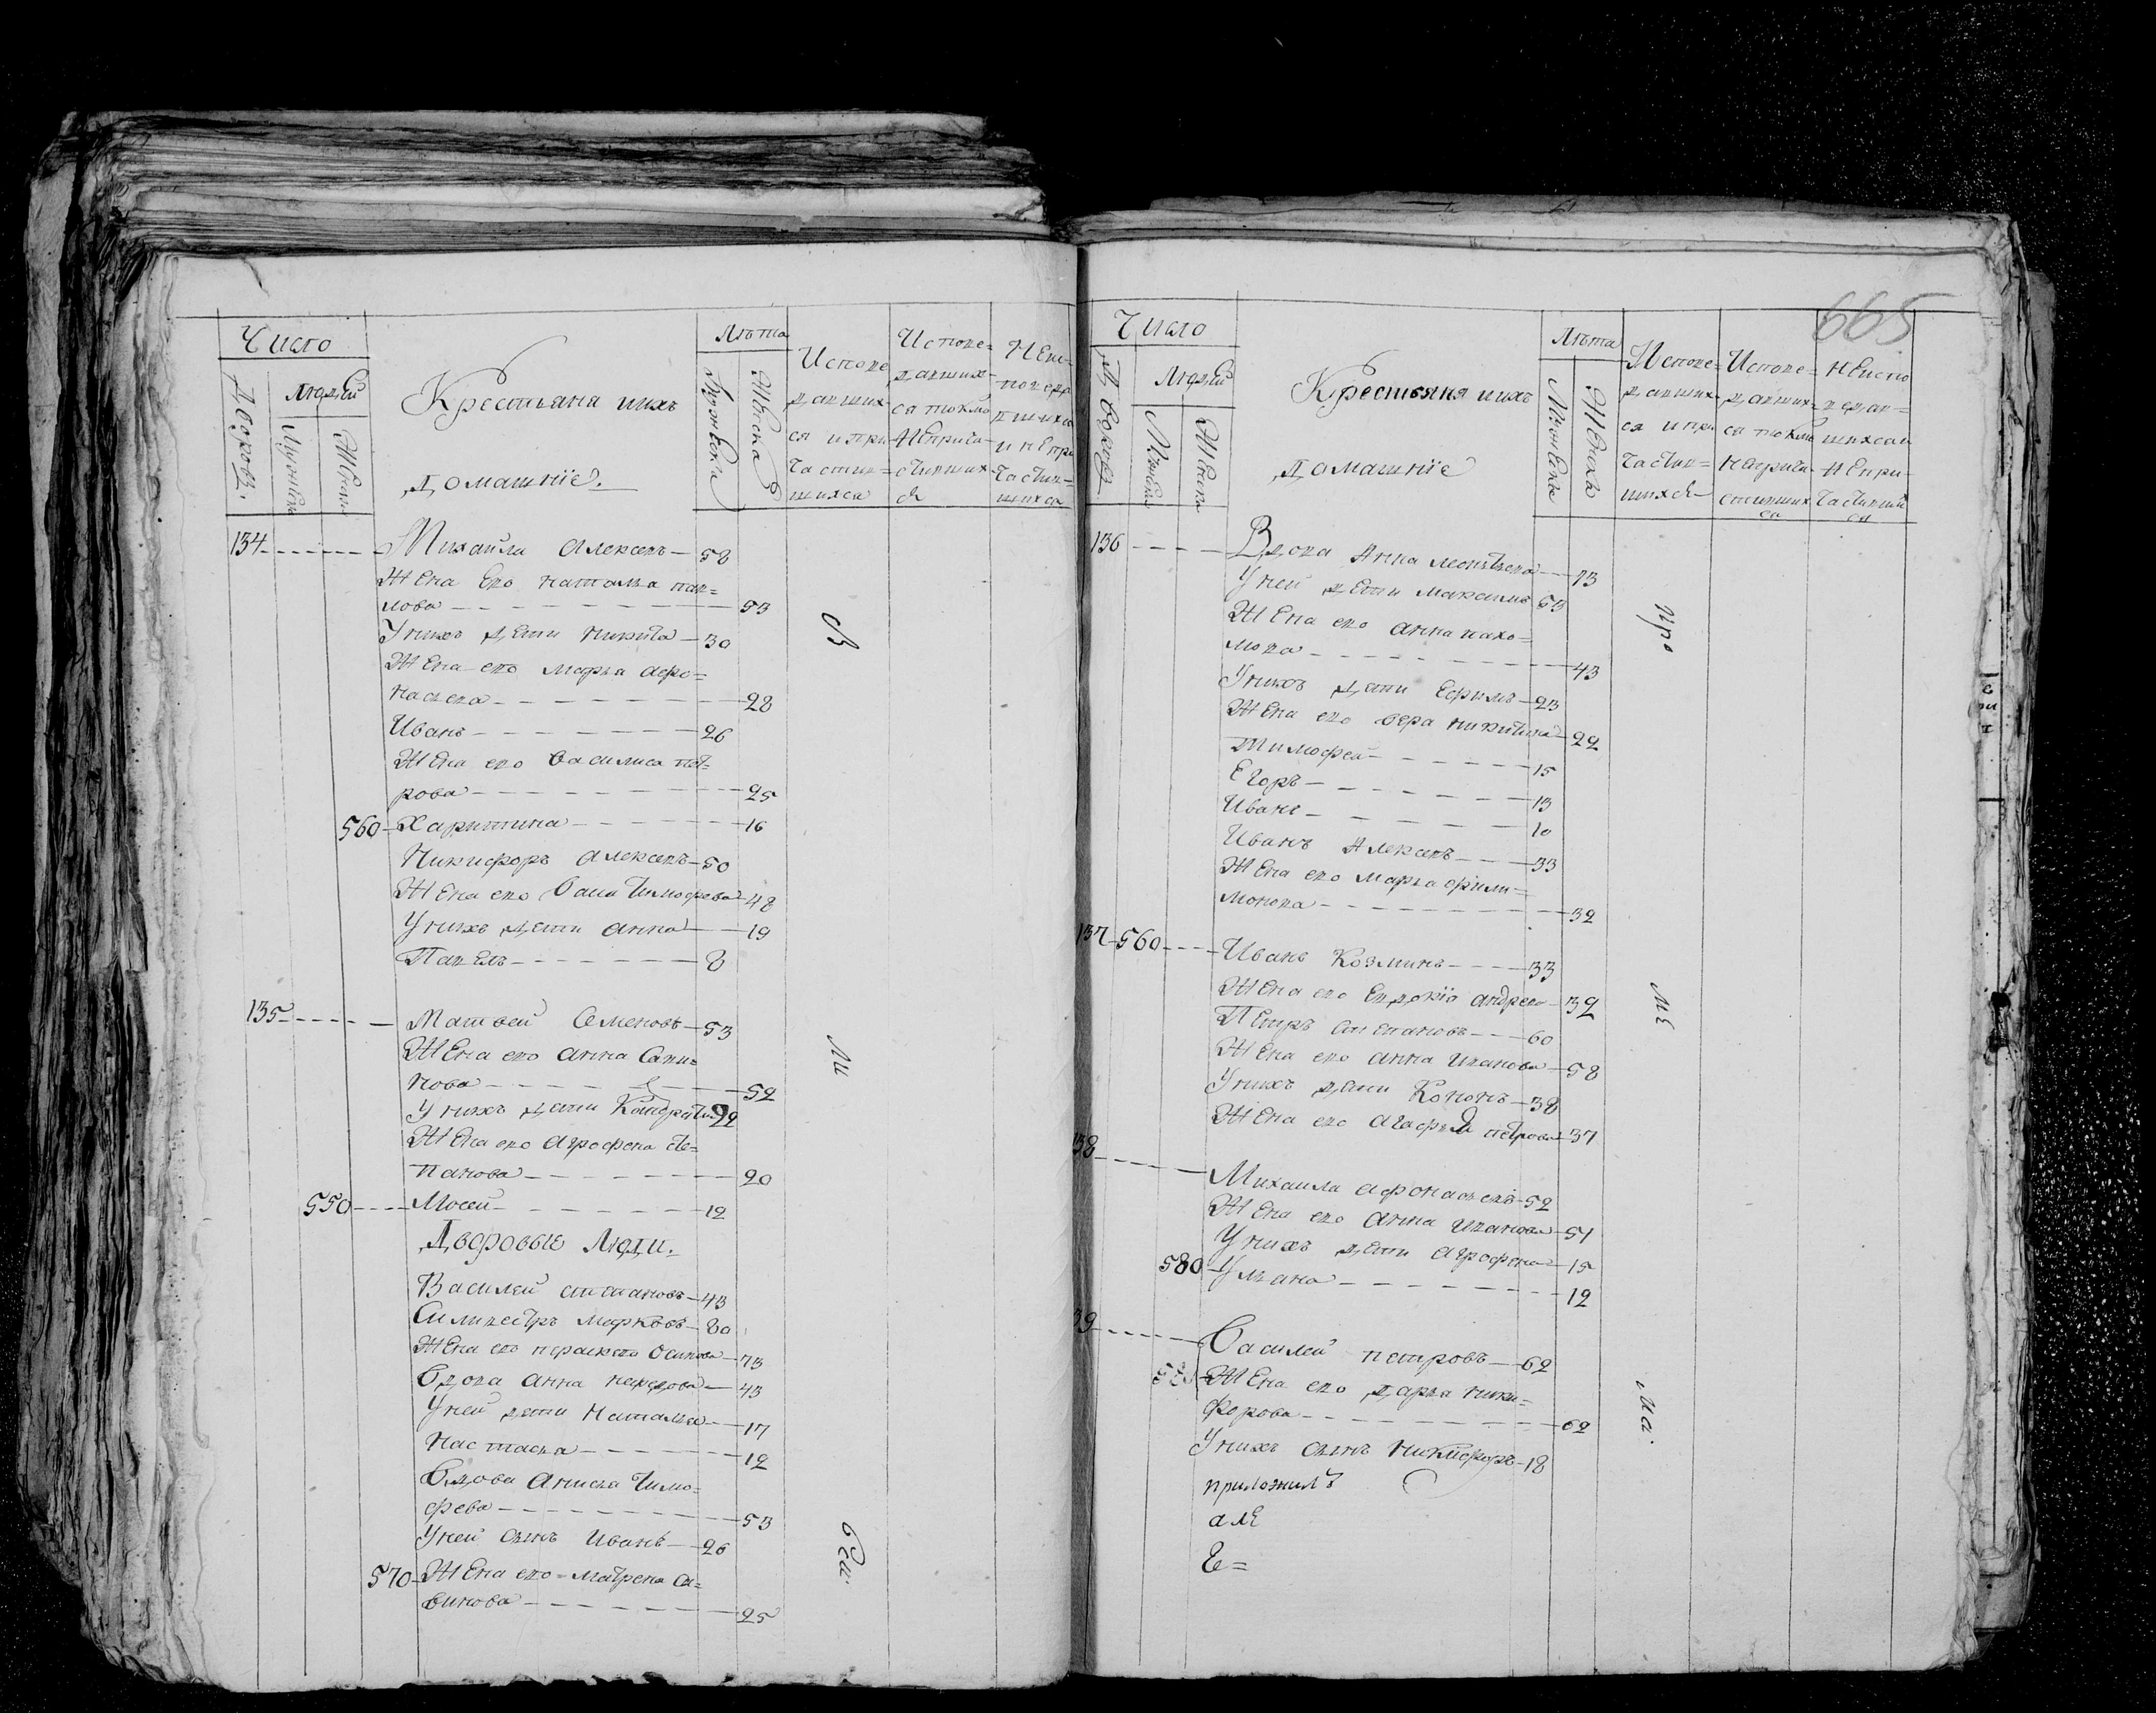 Число
Дворовъ.
Людей
Мужеска
Женска
Крестьяня ихъ
домашніе.
Лѣта
Мужеска
Женска
Испове
давших
ся и при
частив=
шихся
Испове=
давших
ся токмо
Неприча=
стивших
ся
Неис=
поведа
вшихся
и непри
частив=
шихся
134 Михаила Алексеевъ 58
Жена Его наталья пав=
лова 53
У нихъ дети никита 30
Жена его марья афо=
насьева 28
Иванъ 26
Жена его василиса пет=
рова 25
560 Харитина 16
Никифоръ Алексеевъ 50
Жена его Тимофеева 48
У нихъ дети анна 19
Павелъ 8
135 Матвей Семеновъ 53
Жена его анна Сави=
нова 52
У нихъ дети Кондратий 22
Жена его аграфена сте=
панова 20
550 Мосей 12
Дворовые Люди.
Василей степановъ 43
Силивестръ марковъ 80
Жена его пераскева осипова 73
Вдова анна 43
У ней дети наталья 17
Настасья 12
Вдова анисья тимо=
феева 53
У ней сынъ иванъ 26
570 Жена его матрена са=
винова 25
св
ли
665
Число
Дворовъ
Людей
Мужеска
Женска
Крестьяня ихъ
домашніе
Лѣта
Мужеска
Женска
Испове=
давших
ся и при
частив=
шихся
Испове=
давших
ся токмо
неприча
стивших
ся
Неиспо
ведав=
шихся и
непри=
частивши
ся
136 Вдова Анна леонтьева 73
У ней дети максимъ 53
Жена его анна пахо=
мова 43
У нихъ дети ефимъ 23
Жена его вера никитина 22
Тимофей 15
Егоръ 13
Иванъ 10
Иванъ Алексеевъ 33
Жена его марья фили=
монова 32
137 560 Иванъ Козминъ 33
Жена его Евдокіа андреева 32
Петръ степановъ 60
Жена его анна иванова 58
У нихъ дети Кононъ 38
Жена его агафья петрова 37
38 Михаила афонасьевъ 52
Жена его анна иванова 51
У нихъ дети аграфена 15
580 Ульяна 12
39 Василей петровъ 62
Жена его дарья ники=
форова 62
У нихъ сынъ никифоръ 18
приложилъ
але
про
ме
ма.